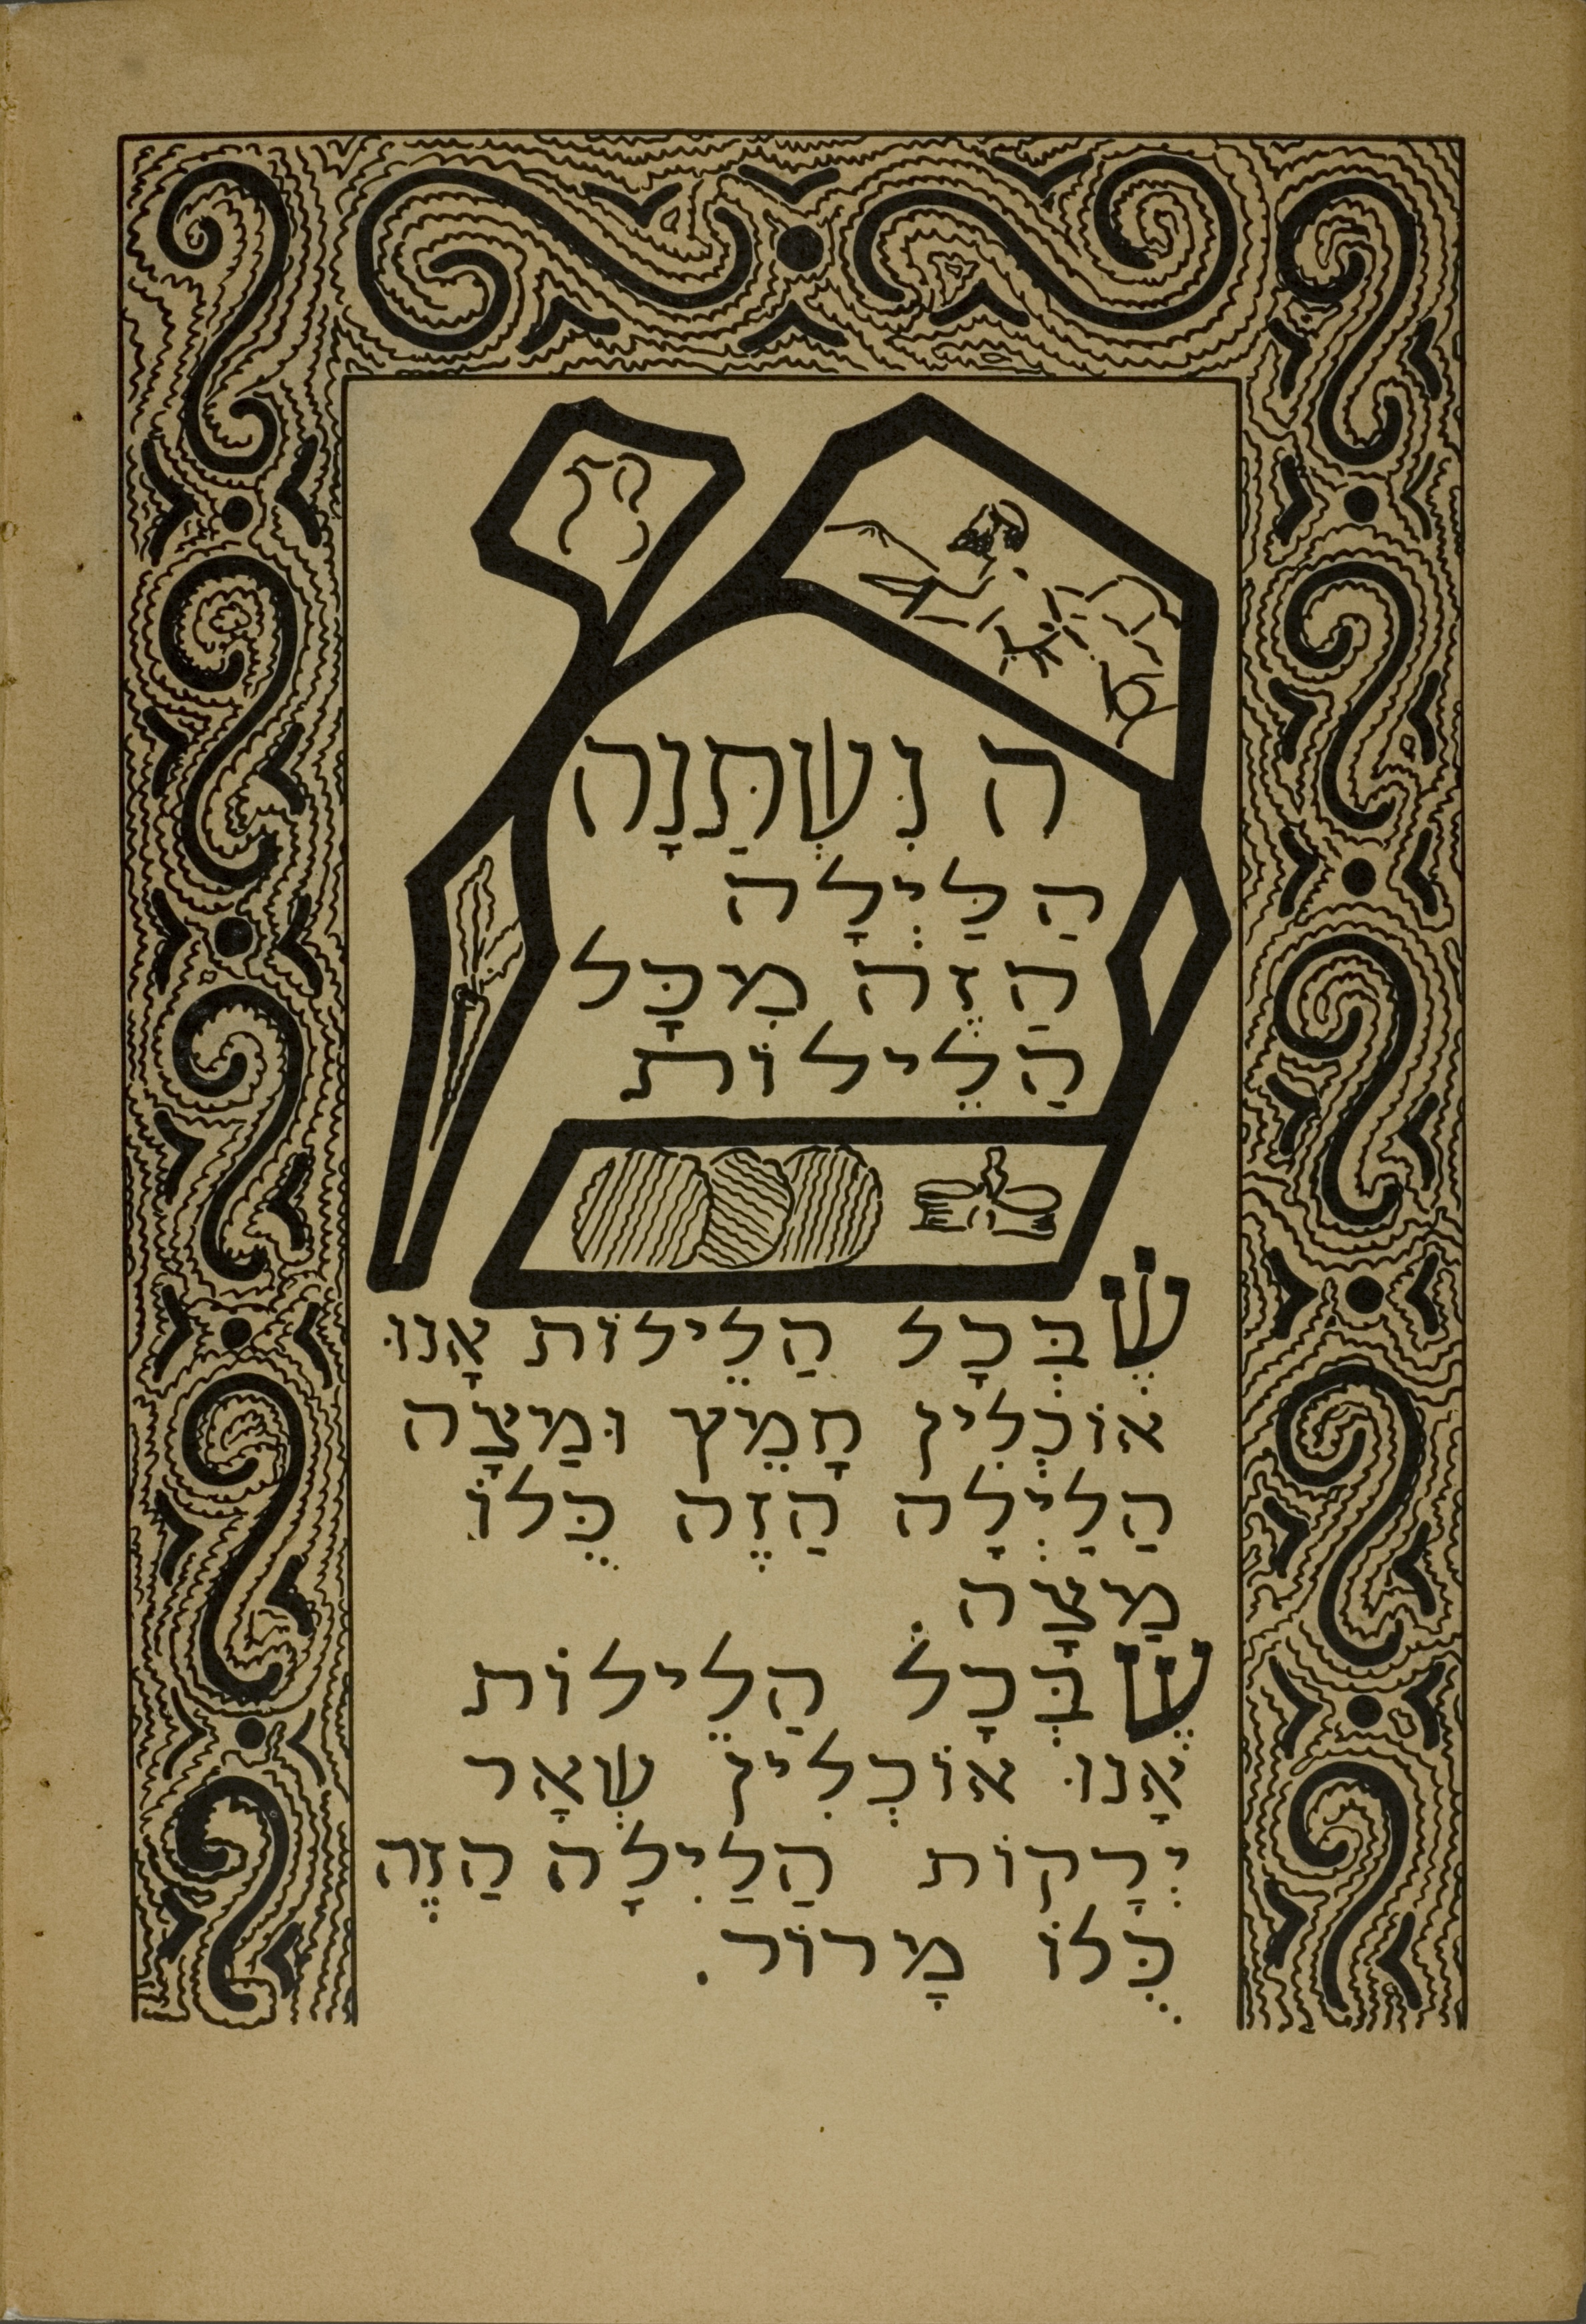 מָה נִּשְׁתַּנָה
הַלַּיְלָה
הַזֶה מִכָּל
הַלֵילוֹת
שֶׁבְּכָל הַלֵילוֹת אָנוּ
אוֹכְלִין חָמֵץ וּמַצָה
הַלַיְלָה הַזֶה כֻּלוֹ
מַצָה.
שֶׁבְּכָל הַלֵילוֹת
אָנוּ אוֹכְלִין שְׁאָר
יְרָקוֹת הַלַיִלָה הַזֶה
כֻּלוֹ מָרוֹר.